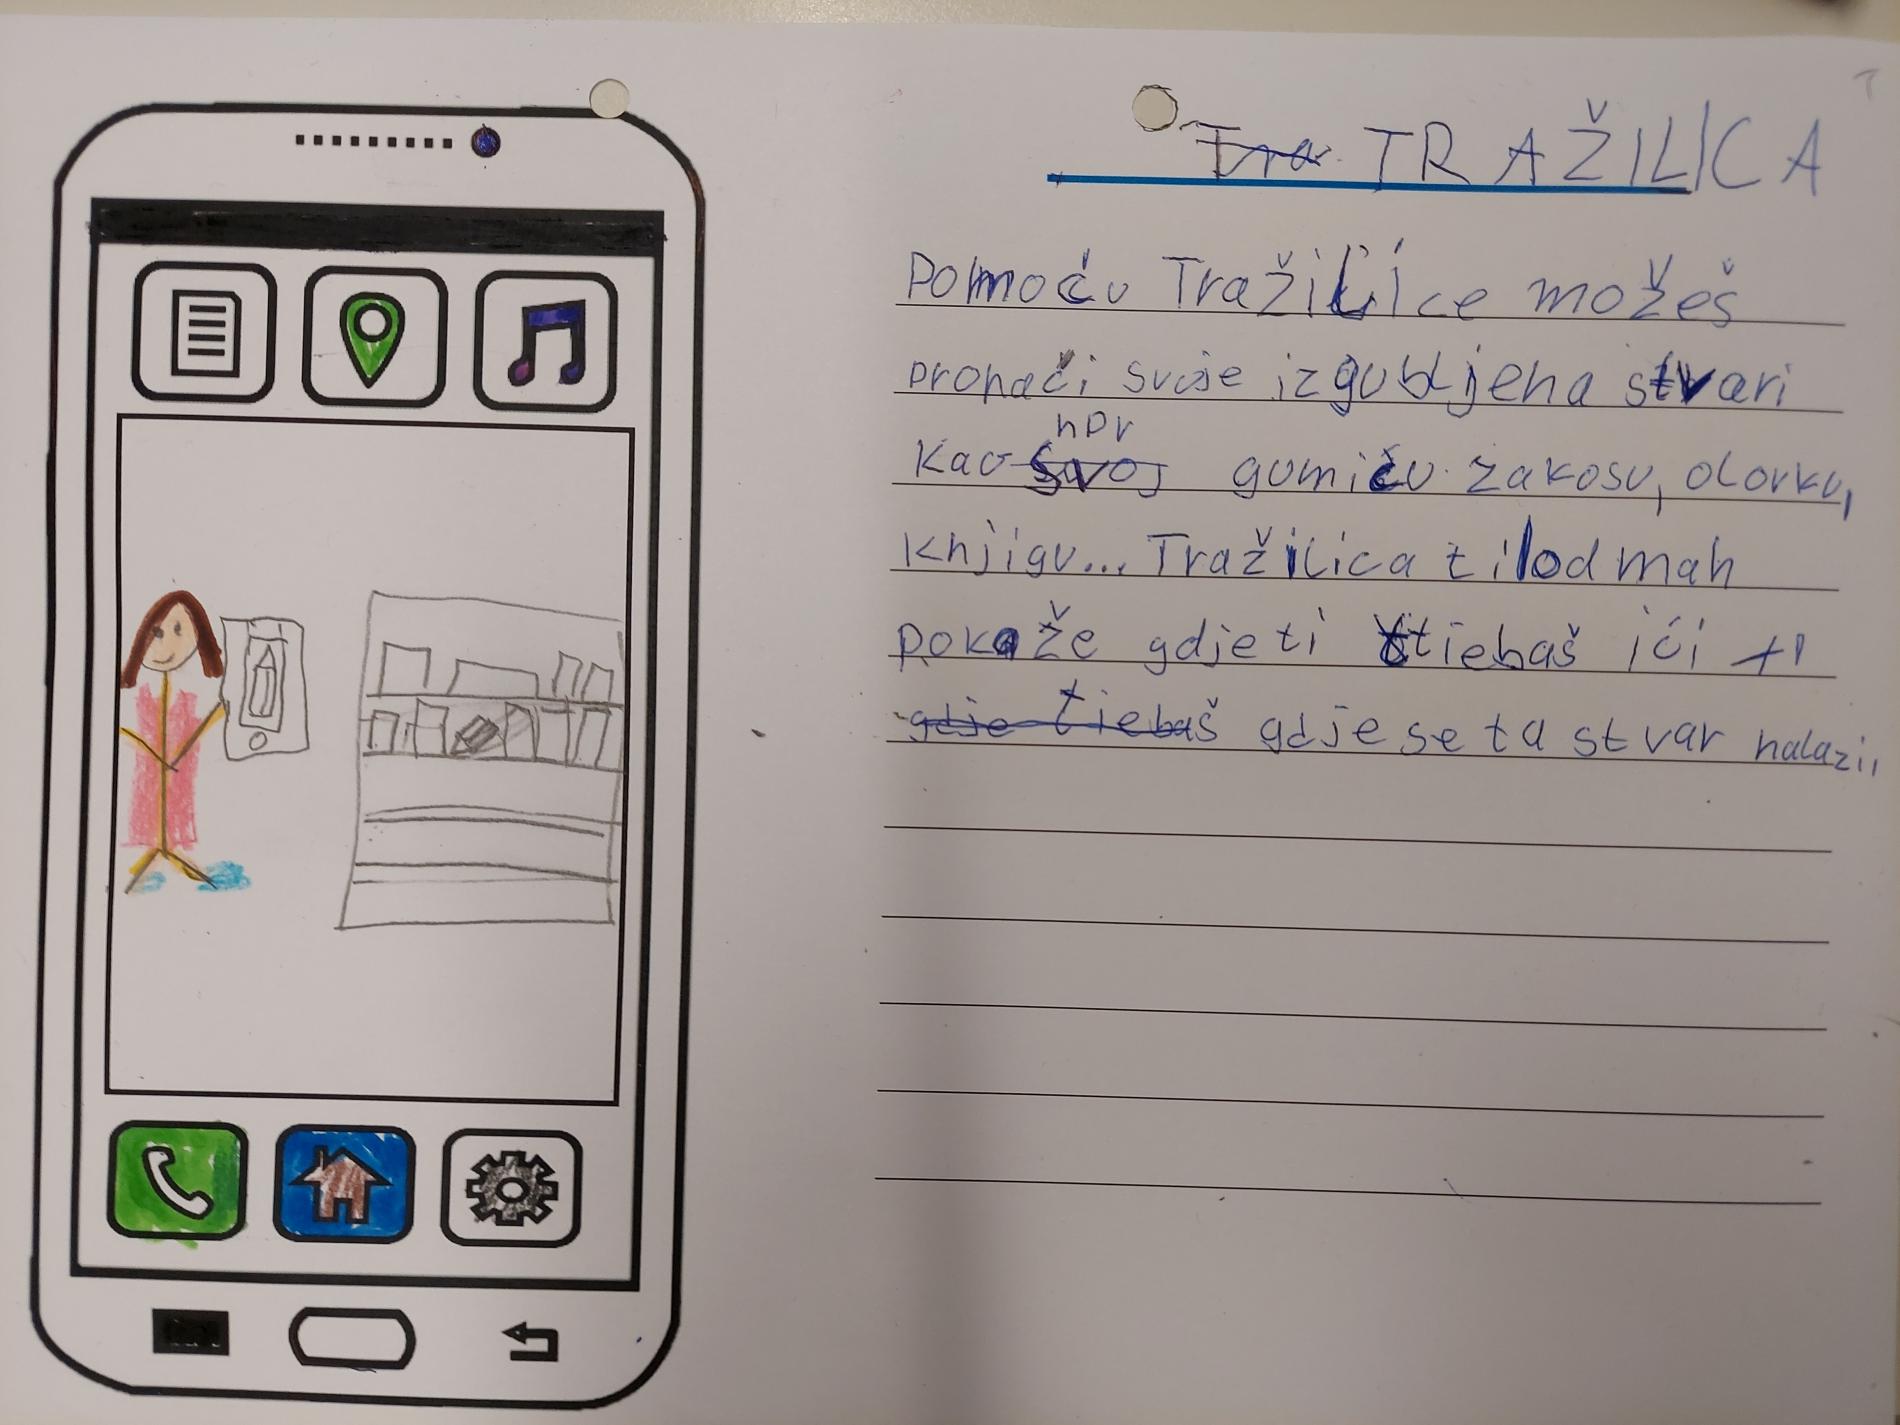 Tra TRAŽILICA
Pomoću Tražilice možeš
pronaći svoje izgubljena stvari
npr
kao svoj gumicu za kosu, olovku,
knjigu... Tražilica ti odmah
pokaže gdje ti tiebaš ići
gdje tiebaš gdje se ta stvar nalazi